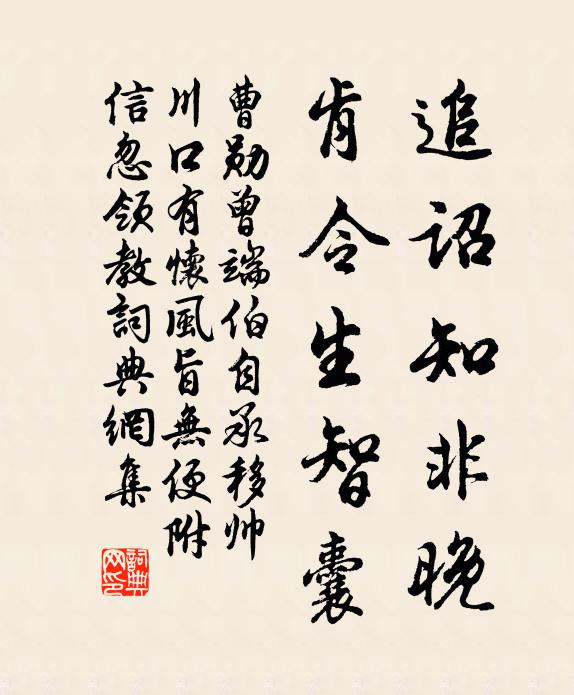 追詔知非晚
肯令生智囊
曹勛曾端伯自承移帅
川口有懷風旨無便附
信忽領教詞典網集
詞典网印